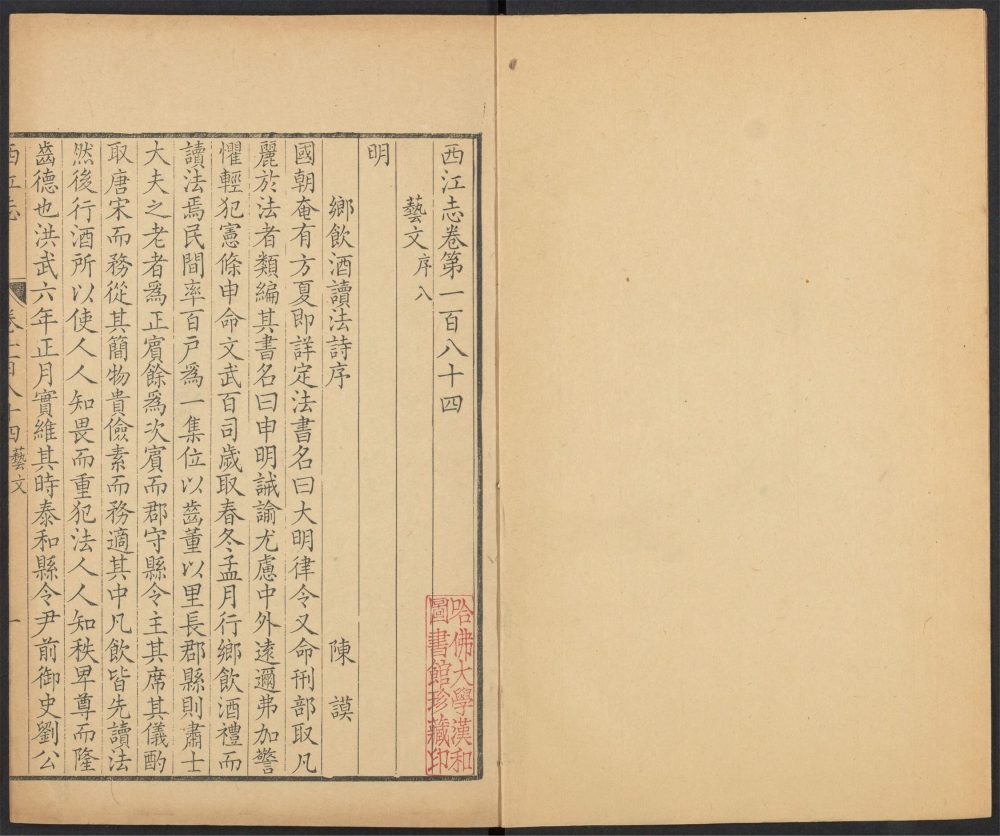 西江志卷第一百八十四
藝文序八
明
鄉飲酒讀法詩序 陳謨
國朝奄有方夏即詳定法書名曰大明律令又命刑部取凡
麗於法者類編其書名曰申明誡諭尤慮中外遠邇弗加警
懼輕犯憲條申命文武百司歲取春冬孟月行鄉飲酒禮而
讀法焉民間率百戸爲一集位以齒董以里長郡縣則肅士
大夫之老者爲正賓餘爲次賓而郡守縣令主其席其儀酌
取唐宋而務從其簡物貴儉素而務適其中凡飲皆先讀法
然後行酒所以使人人知畏而重犯法人人知秩卑尊而隆
齒德也洪武六年正月實維其時泰和縣令尹前御史劉公
西江志 卷一百八十四藝文 一
哈佛大學漢和
圖書館珍藏印